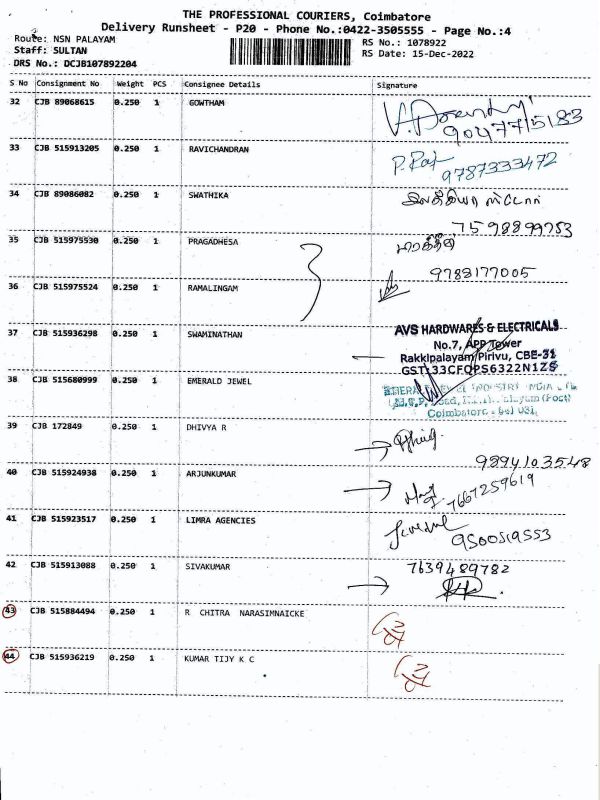 THE PROFESSIONAL COURIERS, Coimbatore
Delivery Runsheet - P20 - Phone No.:0422-3505555 - Page No.:4
Route: NSN PALAYAM
RS No.: 1078922
Staff: SULTAN
RS Date: 15-Dec-2022
DRS No.: DCJB107892204
S No Consignment No Weight PCS Consignee Details Signature
32 CJB 89068615 0.250 1 GOWTHAM
9047715183
33 CJB 515913205 0.250 1 RAVICHANDRAN P. Raj
9787333472
34 CJB 89086082 0.250 1 SWATHIKA
7598899753
35 CJB 515975530 0.250 1 PRAGADHESA
9788177005
36 CJB 515975524 0.250 1 RAMALINGAM
37 CJB 515936298 0.250 1 SWAMINATHAN
AVS HARDWARES & ELECTRICALS
No.7, APP Tower
Rakkipalayam Pirivu, CBE-31
GST:33CFQPS6322N1ZS
38 CJB 515680999 0.250 1 EMERALD JEWEL
Coimbatore - 641 031.
39 CJB 172849 0.250 1 DHIVYA R
9894103548
40 CJB 515924938 0.250 1 ARJUNKUMAR
7667259619
41 CJB 515923517 0.250 1 LIMRA AGENCIES
9500519553
42 CJB 515913088 0.250 1 SIVAKUMAR 7639489782
43 CJB 515884494 0.250 1 R CHITRA NARASIMNAICKE
44 CJB 515936219 0.250 1 KUMAR TIJY K C